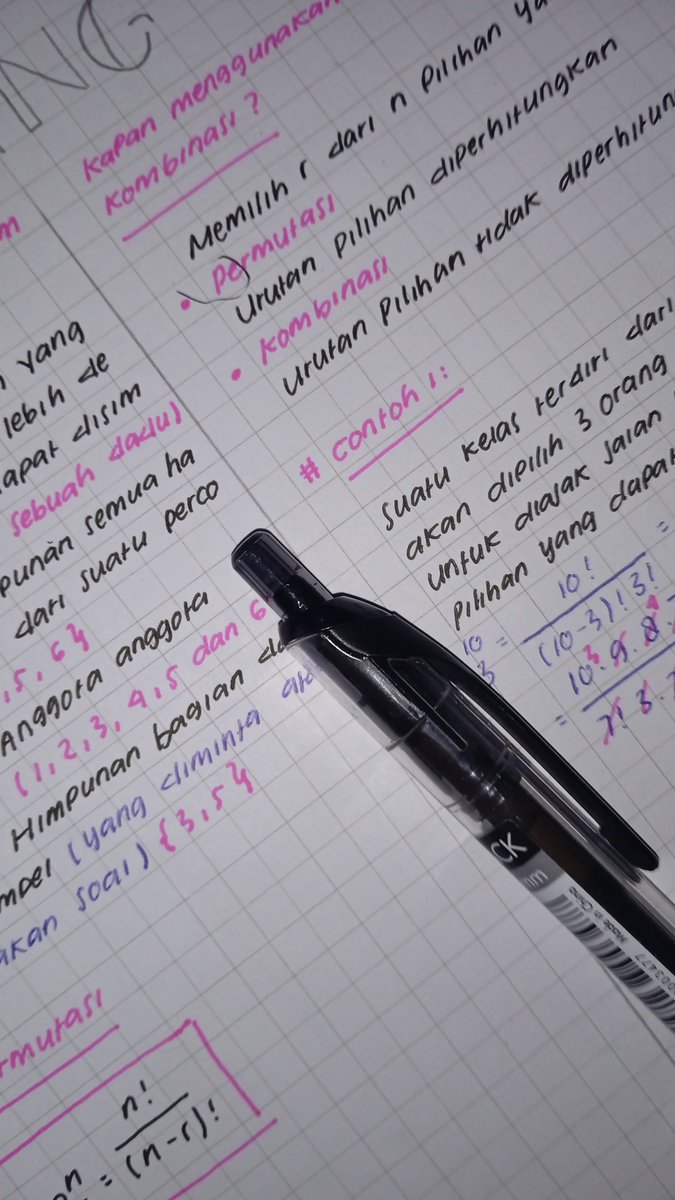 kapan menggunakan
kombinasi ?
Memilih r dari n pilihan
• permutasi
urutan pilihan diperhitungkan
• kombinasi
urutan pilihan tidak
# contoh 1:
suatu kelas terdiri dari
akan dipilih 3 orang
untuk diajak jalan
pilihan yang dapat
10!
= (10-3)! 3!
10 . 9 . 8 .
= 7! 3 .
yang
lebih de
apat disim
sebuah dadu)
punan semua ha
dari suatu perco
, 5, 6}
Anggota anggota
(1, 2, 3, 4, 5 dan 6
Himpunan bagian da
mpel (yang diminta
akan soal) {3, 5}
rmutasi
n!
n = (n-r)!
CK
mm
Made in China